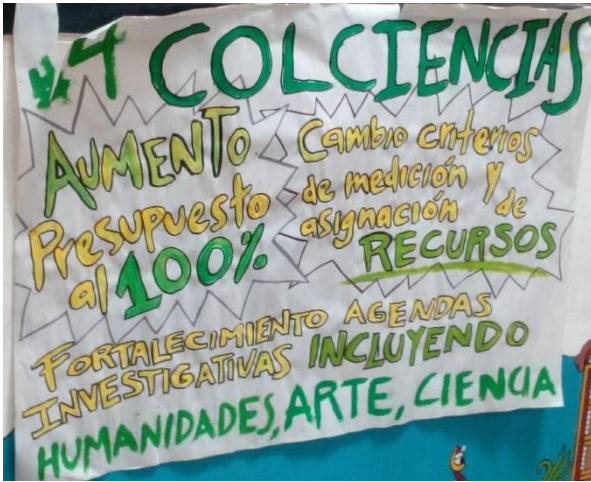 4 COLCIENCIAS
AUMENTO
Presupuesto
al 100%
Cambio criterios
de medición y
asignación de
RECURSOS
FORTALECIMIENTO AGENDAS
INVESTIGATIVAS INCLUYENDO
HUMANIDADES, ARTE, CIENCIA